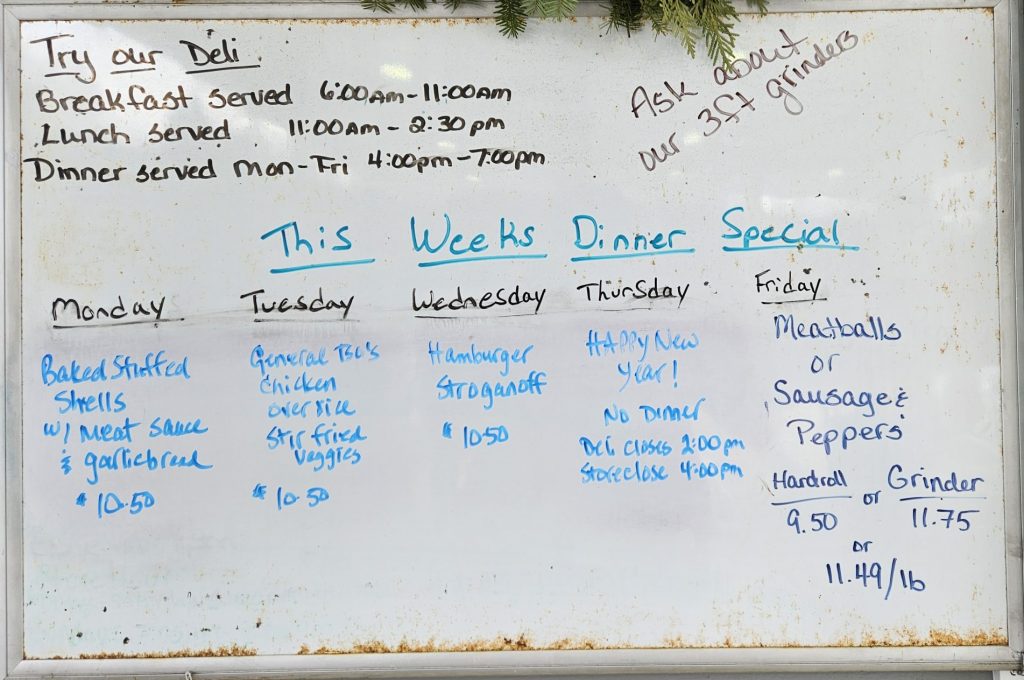 Try our Deli
Breakfast served 6:00AM-11:00AM
Lunch served 11:00AM - 2:30pm
Dinner served Mon-Fri 4:00pm-7:00pm
Ask about
our 3ft grinders
This Weeks Dinner Special
Monday
Baked Stuffed
Shells
w/ Meat sauce
& garlicbread
$10.50
Tuesday
General Tso's
Chicken
over rice
Stir fried
veggies
$10.50
Wednesday
Hamburger
Stroganoff
$10.50
Thursday
HAPPy New
Year!
No Dinner
Deli closes 2:00pm
Store close 4:00pm
Friday
Meatballs
or
Sausage &
Peppers
Hardroll or Grinder
9.50 11.75
or
11.49/lb